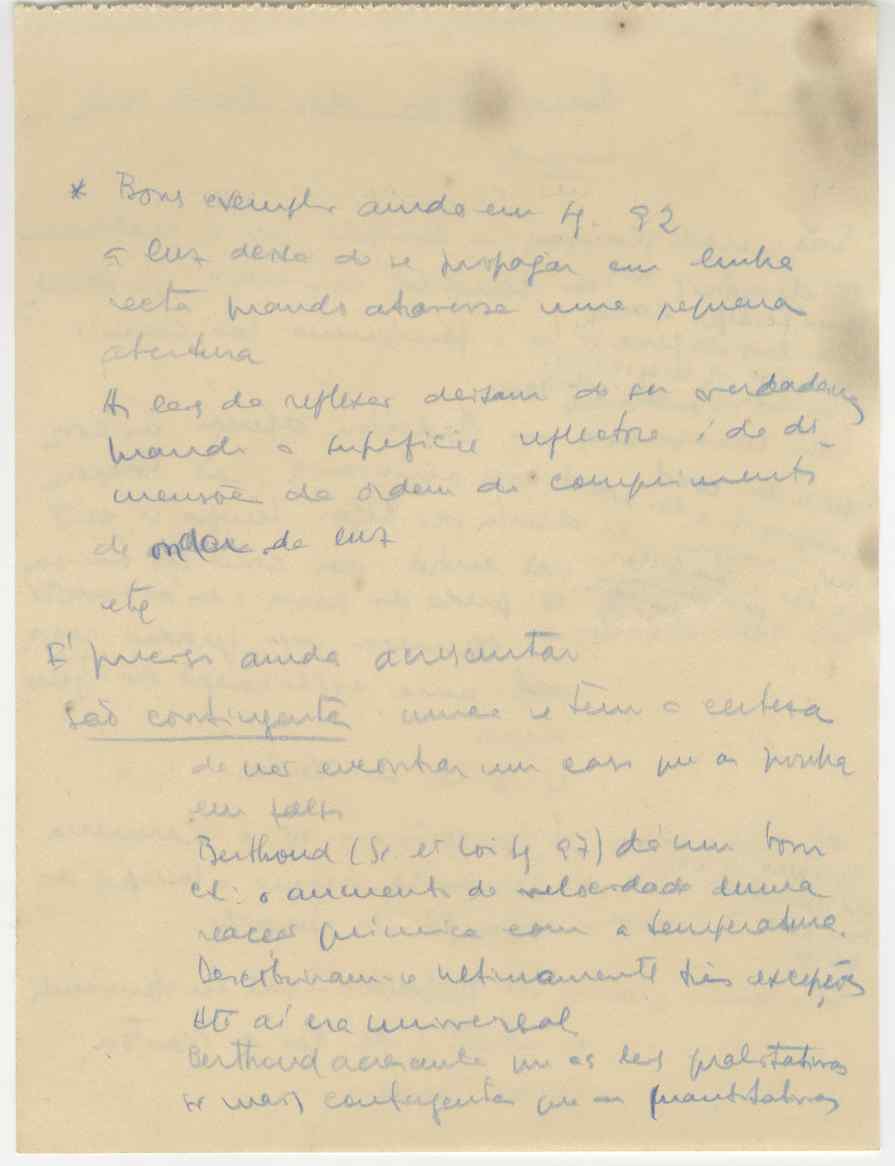 * Bons exemplos ainda em 4. 92
a luz deixa de se propagar em linha
recta quando atravessa uma pequena
abertura
As leis da reflexão deixam de ser verdadeiras
quando a superfície reflectora é de di-
mensões da ordem do comprimento
de onda da luz
etc
É preciso ainda acrescentar
São contingentes nunca se tem a certeza
de não encontrar um caso que as ponha
em falso
Berthoud (Sc. et Loi 97) dá um bom
ex: o aumento de velocidade duma
reacção química com a temperatura.
Descobriram-se ultimamente três excepções
Até aí era universal
Berthoud acrescenta que as leis qualitativas
são mais contingentes que as quantitativas